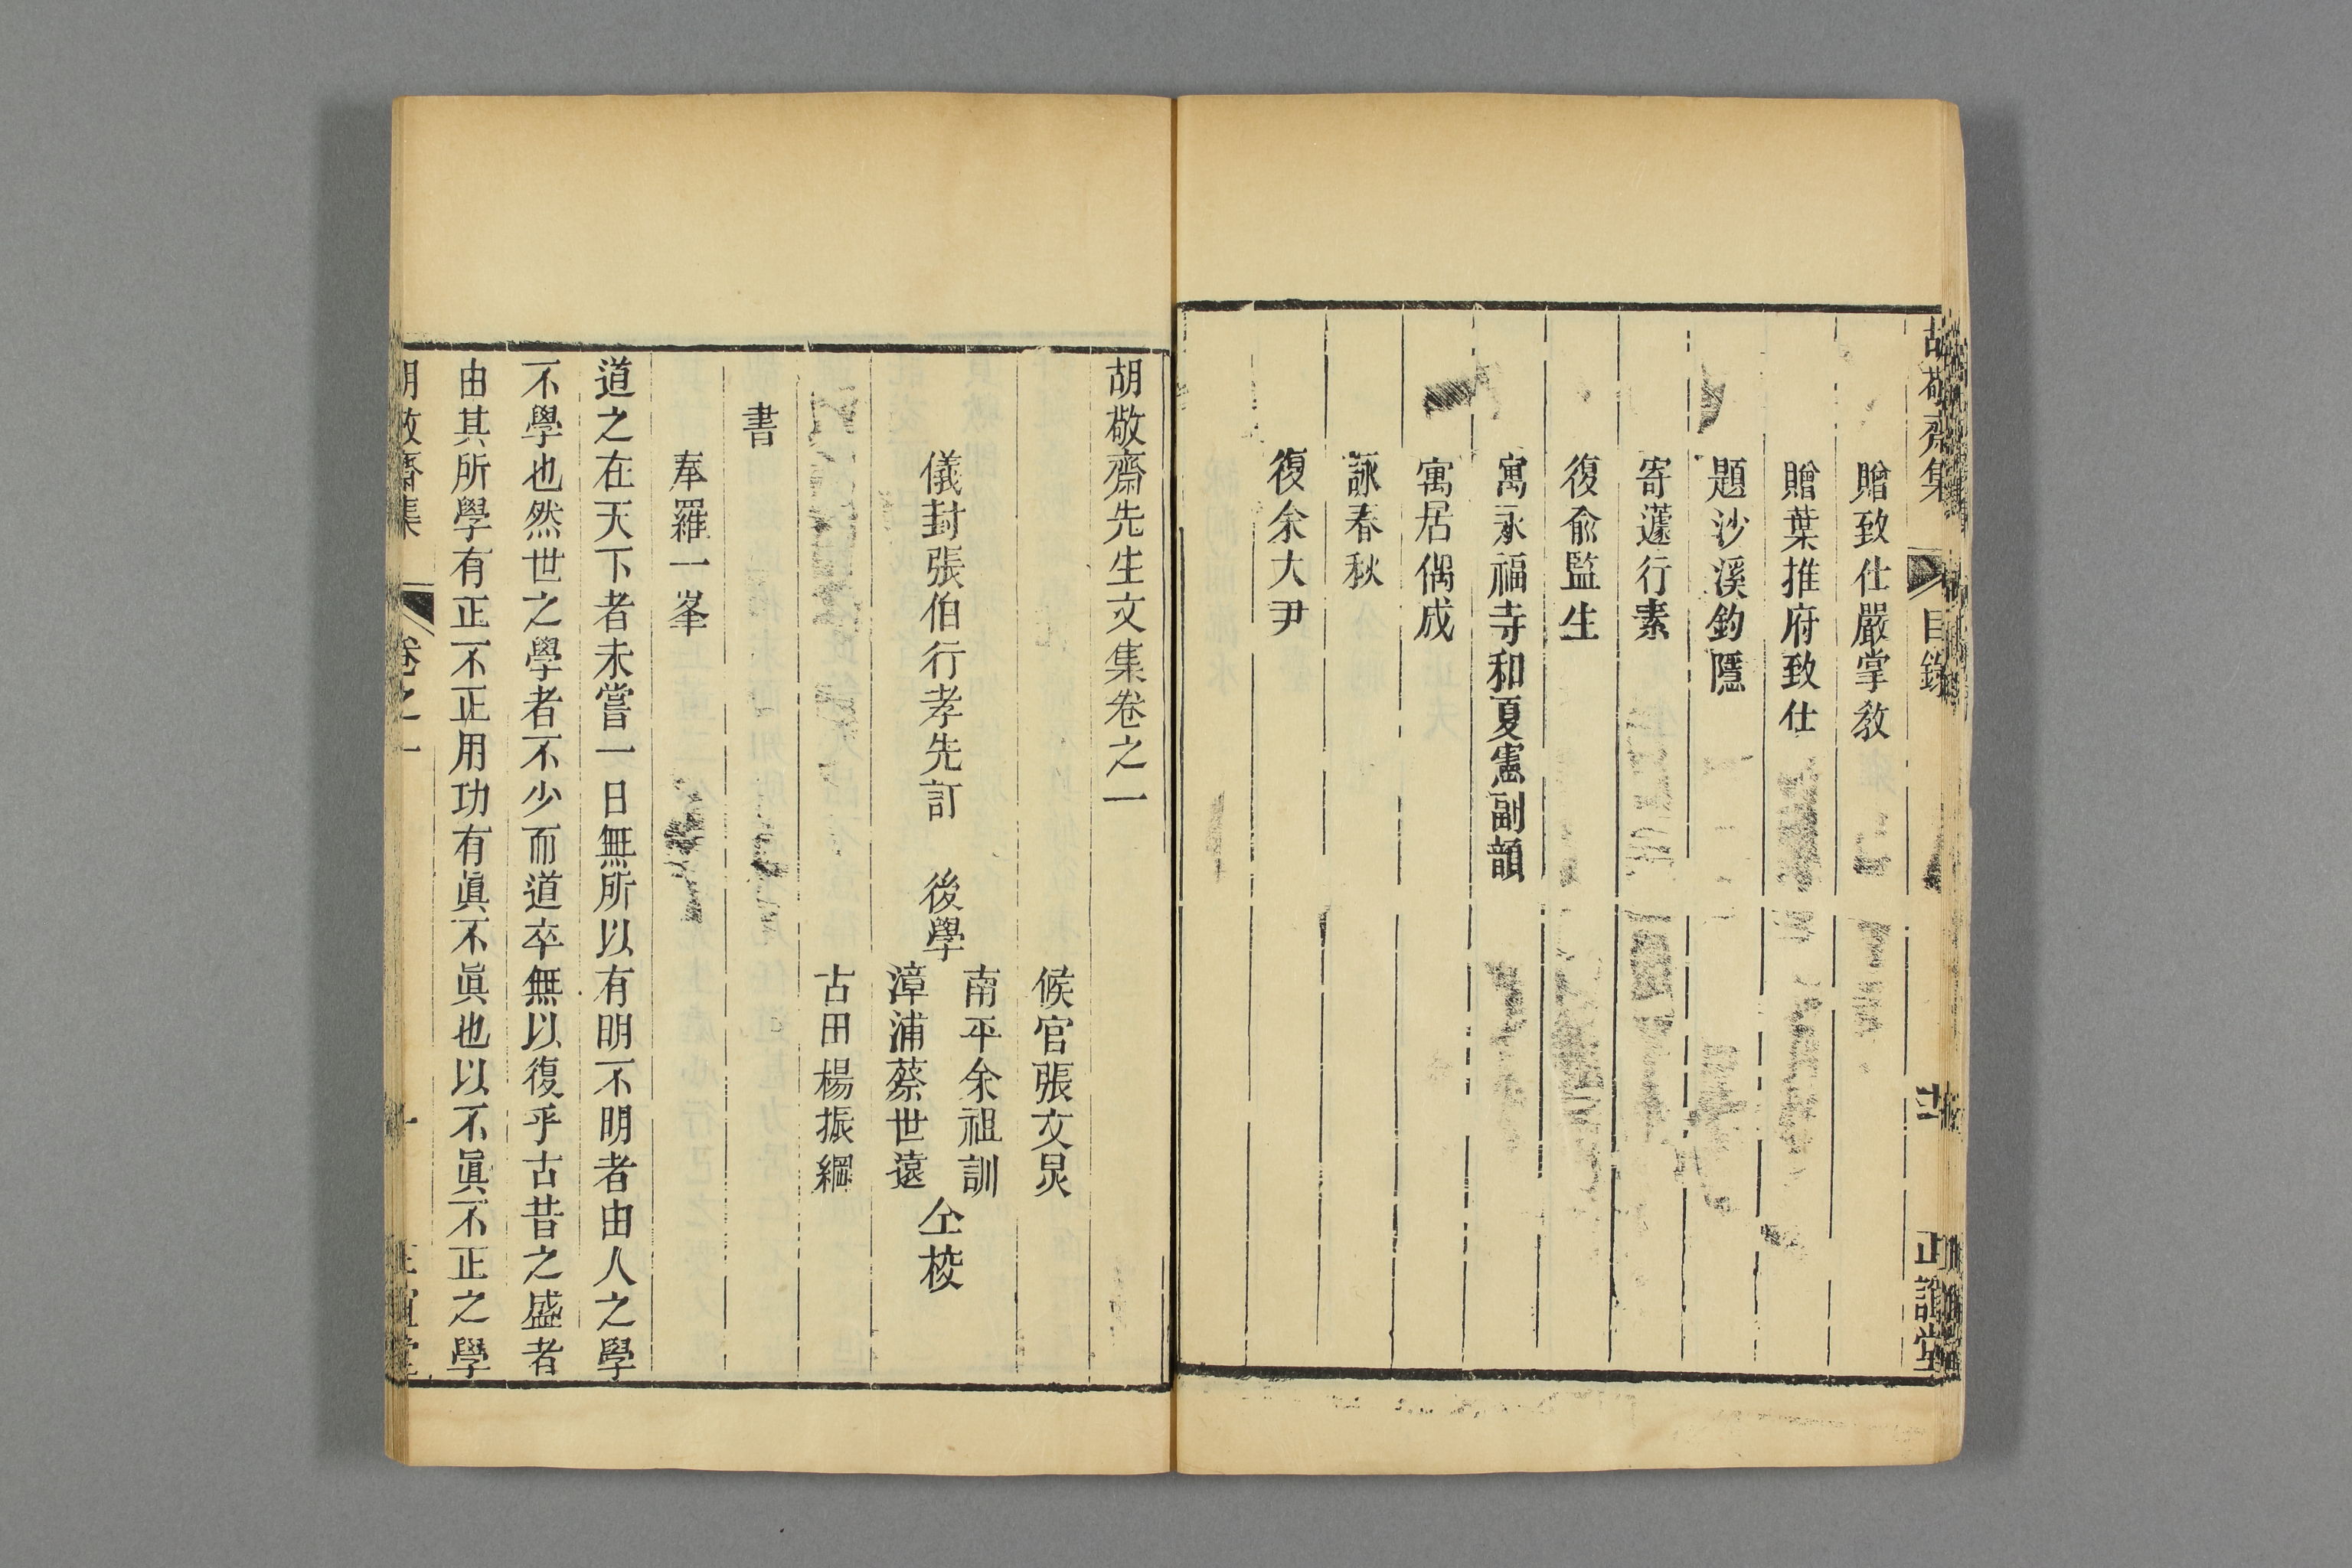 胡敬齋集 目錄 正誼堂
贈致仕嚴掌教
贈葉推府致仕
題沙溪釣隱
寄蘧行素
復俞監生
寓永福寺和夏憲副韻
寓居偶成
詠春秋
復余大尹
胡敬齋先生文集卷之一
儀封張伯行孝先訂 後學
候官張文炅
南平余祖訓
漳浦蔡世遠
古田楊振綱
仝校
書
奉羅一峯
道之在天下者未嘗一日無所以有明不明者由人之學
不學也然世之學者不少而道卒無以復乎古昔之盛者
由其所學有正不正用功有眞不眞也以不眞不正之學
胡敬齋集 卷之一 一 正誼堂